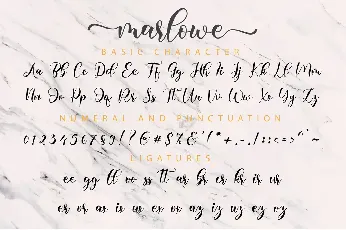 marlowe
BASIC CHARACTER
Aa Bb Cc Dd Ee Ff Gg Hh Ii Jj Kk Ll Mm
Nn Oo Pp Qq Rr Ss Tt Uu Vv Ww Xx Yy Zz
NUMERAL AND PUNCTUATION
0123456789!?
LIGATURES
ee gg ll oo ss tt ar br er kr ir ur